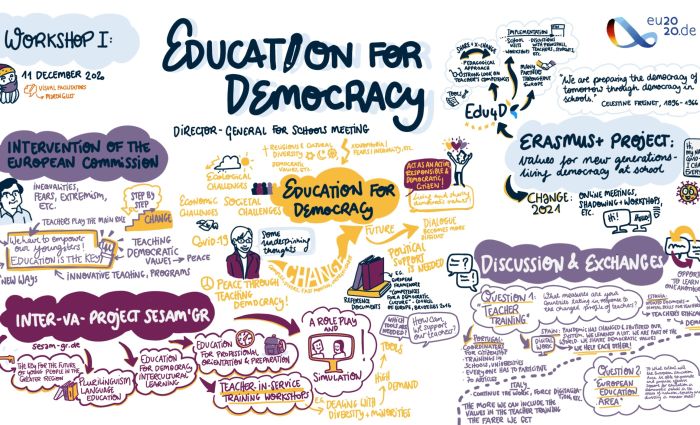 WORKSHOP I:
11 DECEMBER 2020
VISUAL FACILITATORS
EDUCATION FOR
DEMOCRACY
DIRECTOR-GENERAL FOR SCHOOLS MEETING
eu20
20.de
IMPLEMENTATION
SCHOOL VISITS
WORKSHOPS
SHARE + X-CHANGE
PEDAGOGICAL
APPROACH
STRONG LOOK ON
TEACHER'S COMPETENCES
TOOLS
MANY
PARTNERS
THROUGHOUT
EUROPE
Edu4D
"We are preparing the democracy of
tomorrow through democracy in
schools."
CELESTINE FREINET, 1896-1966
ERASMUS+ PROJECT:
Values for new generations-
living democracy at school
CHANGE:
2021
ONLINE MEETINGS,
SHADOWING + WORKSHOPS,
ETC.
Hi!
INTERVENTION OF THE
EUROPEAN COMMISSION
INEQUALITIES,
FEARS, EXTREMISM,
ETC.
TEACHERS PLAY THE MAIN ROLE
STEP BY
STEP
CHANGE
We have to empower
our youngsters!
EDUCATION IS THE KEY!
TEACHING
DEMOCRATIC
VALUES → PEACE
NEW WAYS
INNOVATIVE TEACHING, PROGRAMS
+ RELIGIOUS & CULTURAL
DIVERSITY
DEMOCRATIC
VALUES, ETC.
XENOPHOBIA/
FEARS/
ECOLOGICAL
CHALLENGES
ECONOMIC
CHALLENGES
SOCIETAL
CHALLENGES
EDUCATION FOR
DEMOCRACY
ACT AS AN ACTIVE
RESPONSIBLE &
DEMOCRATIC
CITIZEN!
Covid-19
Some
underpinning
thoughts
CHANGE
FUTURE
DIALOGUE
BECOMES MORE
DIFFICULT
POLITICAL
SUPPORT IS NEEDED
PEACE THROUGH
TEACHING
DEMOCRACY!
REFERENCE
DOCUMENTS
E.G.
EUROPEAN
FRAMEWORK
"COMPETENCES
FOR A DEMOCRATIC
CULTURE" - COUNCIL
OF EUROPE,
WHICH
TOOLS ARE
NEEDED?
How can
we support
our teacher?
INTER-VA-PROJECT SESAM'GR
sesam-gr.de
THE KEY FOR THE FUTURE
OF YOUNG PEOPLE IN THE
GREATER REGION
PLURILINGUISM
LANGUAGE
EDUCATION
EDUCATION
FOR DEMOCRACY,
INTERCULTURAL
LEARNING
EDUCATION
FOR PROFESSIONAL
ORIENTATION & PREPARATION
TEACHER-IN-SERVICE
TRAINING WORKSHOPS
A ROLE PLAY AND
SIMULATION
TOOLS
HIGH
DEMAND
E.G. DEALING WITH
DIVERSITY + MINORITIES
DISCUSSION & EXCHANGES
QUESTION 1:
TEACHER
TRAINING
What measures are your
countries taking in response to
the changed profile of teachers?
PORTUGAL:
COORDINATORS
FOR CITIZENSHIP
TRAINING IN
SCHOOLS/
UNIVERSITIES
EVERYONE HAS TO PARTICIPATE
SPAIN: PANDEMIC HAS CHANGED & DISRUPTED OUR
DIGITAL
WORK
WE HELP EACH OTHER!
ITALY
CONTINUE THE WORK, FORCE DIGITALISATION, ETC.
THE MORE WE CAN INCLUDE THE
VALUES IN THE TEACHER TRAINING
THE FARER WE GET
QUESTION 2:
EUROPEAN
EDUCATION
AREA